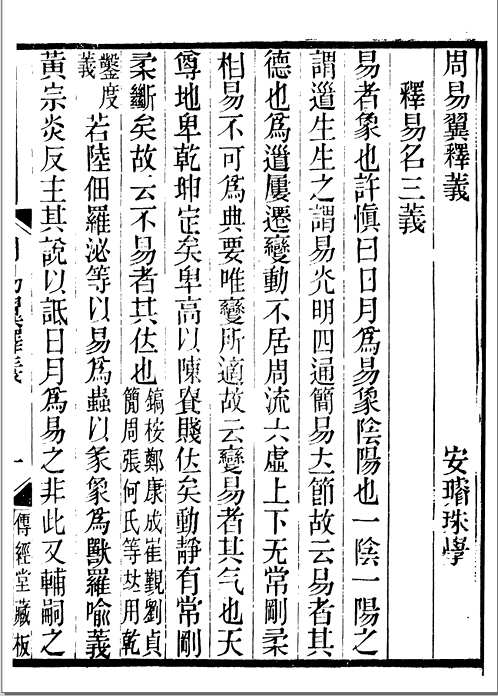 周易翼釋義
安璿珠學
釋易名三義
易者象也許愼曰日月爲易象陰陽也一陰一陽之
謂道生生之謂易光明四通簡易立節故云易者其
德也爲道屢遷變動不居周流六虛上下无常剛柔
相易不可爲典要唯變所適故云變易者其气也天
尊地卑乾坤定矣卑高以陳貴賤位矣動靜有常剛
柔斷矣故云不易者其位也
鎬桉鄭康成崔覲劉貞
簡周張何氏等竝用乾
鑿度
義
若陸佃羅泌等以易爲蟲以彖象爲獸羅喻義
黃宗炎反主其說以詆日月爲易之非此又輔嗣之
一
傳經堂藏板